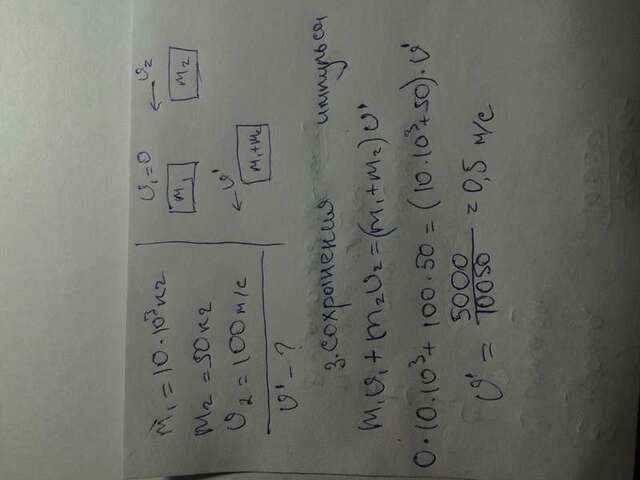 m₁ = 10·10³ кг
m₂ = 50 кг
υ₂ = 100 м/с
υ' - ?
υ₁=0 ← υ₂
m₁ m₂
← υ'
m₁+m₂
З. сохранения импульса
m₁υ₁ + m₂υ₂ = (m₁+m₂)υ'
0·10·10³ + 100·50 = (10·10³+50)·υ'
υ' = 5000/10050 = 0,5 м/с